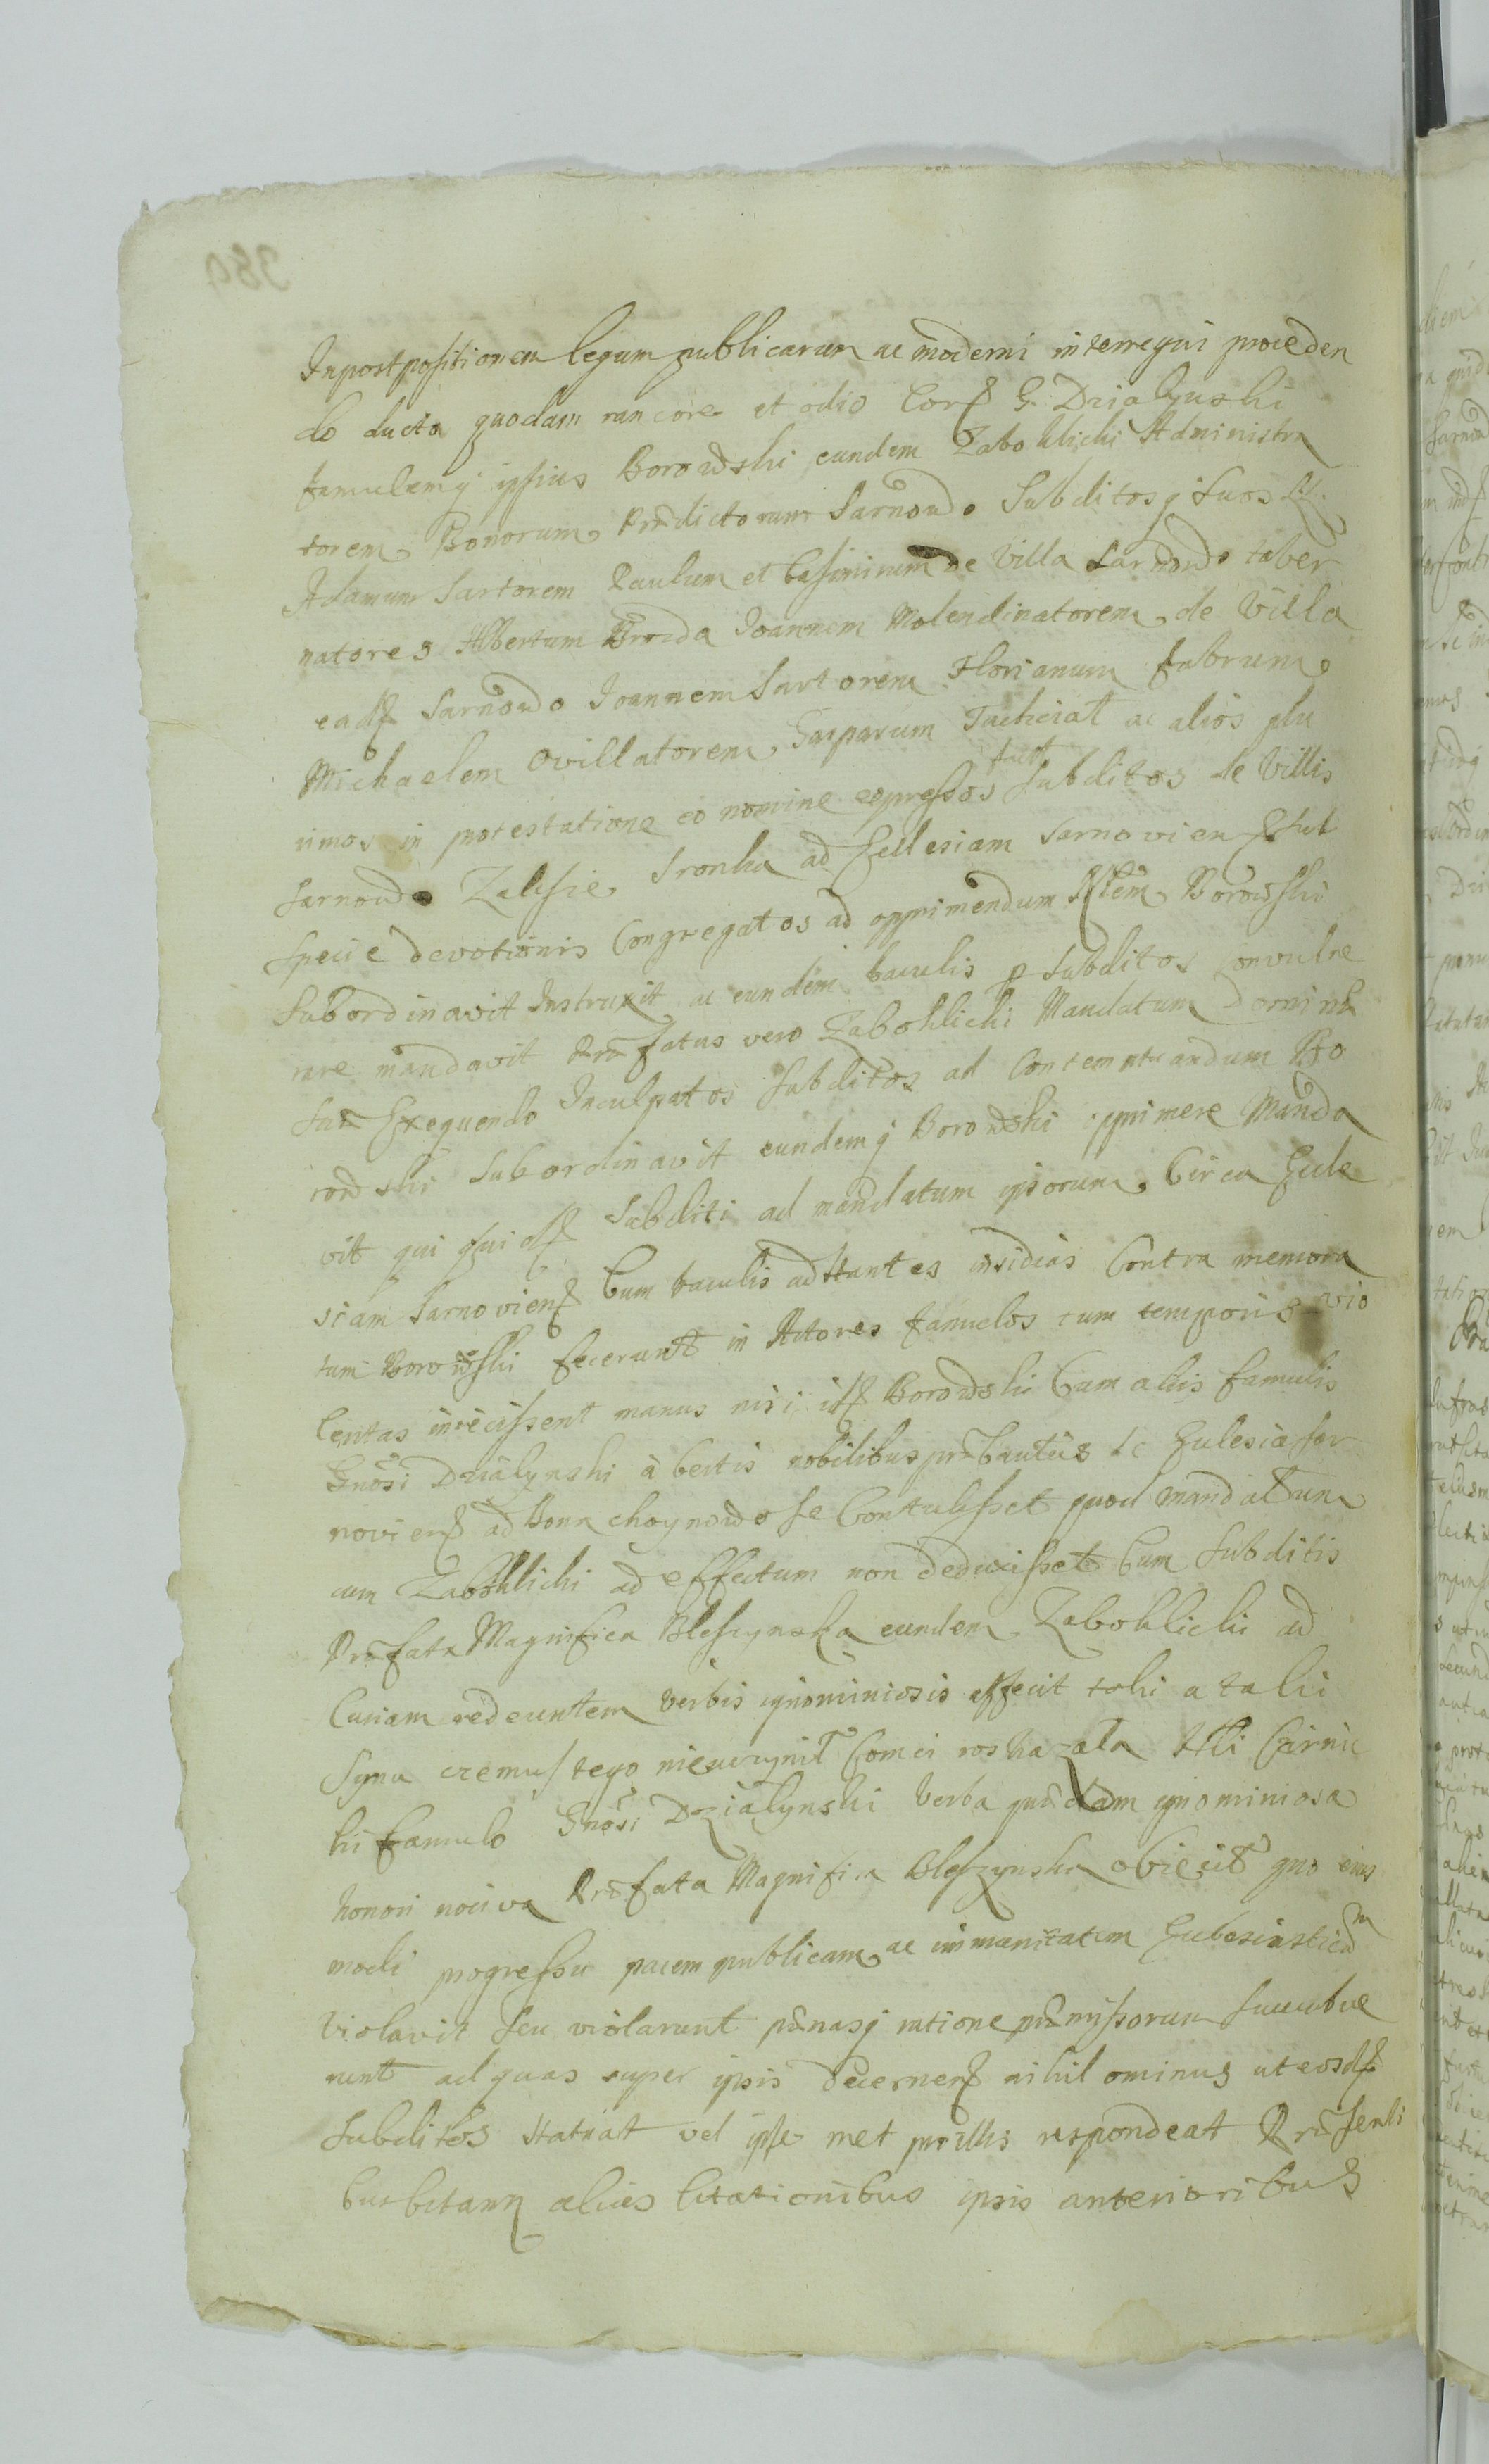 In postpositionem legum publicarum ac moderni interregni proceden
do ducta quodam rancore et odio G. Dzialynski
famulumq ipsius Borowski eundem Zaboklicki Administra
torem Bonorum Prædictorum Sarnowo Subditosq Suos
Adamum Sartorem Paulum et Casimirum de Villa Sarnowo taber
natores Albertum Broda Joannem Molendinatorem de Villa
eadz Sarnowo Joannem Sartorem Florianum fabrum
Michaelem Ovillatorem Gasparum ac alios plu
rimos in protestatione eo nomine expressos Subditos de Villis
Sarnowo Zalesie Sronka ad Ecclesiam Sarnovien Sub
specie devotionis Congregatos ad opprimendum Borowski
Subordinavit Instruxit ac eundem baculis p Subditos convulne
rare mandavit Præfatus vero Zaboklicki Mandatum Dominæ
suæ Exequendo Inculpatos Subditos ad Contentandum Bo
rowski Subordinavit eundemq Borowski opprimere Manda
vit qui quidz Subditi ad mandatum ipsorum Circa Eccle
siam Sarnovienz Cum baculis adstantes insidias Contra memora
tum Borowski fecerunt in Actores famulos tum temporis vio
lentas iniecissent manus nisi idz Borowski Cum aliis famulis
Gnosi Dzialynski à certis nobilibus de Ecclesia Sar
novienz ad Bona choynowo se Contulisset quod mandatum
cum Zaboklicki ad effectum non deduxisset Cum Subditis
Præfata Magnifica Bleszynska eundem Zabokliki ad
Curiam redeuntem verbis ignominiosis affecit taki a taki
Synu czemus tego nieuczynil Com ci roskazala Htli Czernic
ki famulo Gnosi Dzialynski verba quædam ignominiosa
honori nociva Præfata Magnifica Bleszynska obiecit quo eius
modi progressu pacem publicam ac immunitatem Ecclesiasticam
violavit seu violarunt pænasq ratione præmissorum succubue
runt ad quas super ipsis decernenz nihil ominus ut eosdz
Subditos statuat vel ipse met pro illis respondeat Præsenti
bus citant alias Citationibus ipsis anterioribus